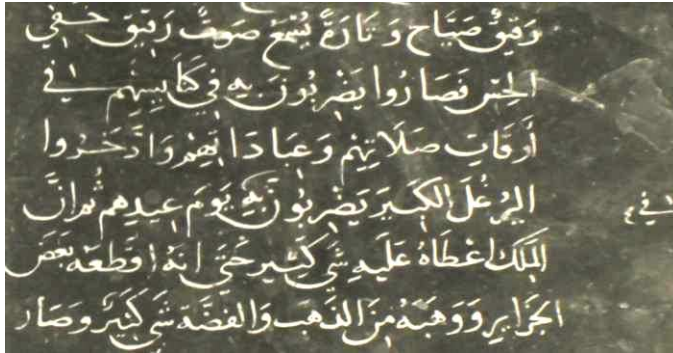 رقيق صياح وتارة يسمع صوت رقيق خفي
الحس فصاروا يضربون به في كنايسهم في
أوقات صلاتهم وعباداتهم وادخروا
الكبير يضربون به يوم عيدهم ثم ان
الملك اعطاه عليه شي كثير حتى انه اقطعه بعض
الجزاير ووهبه من الذهب والفضة شي كثير وصار